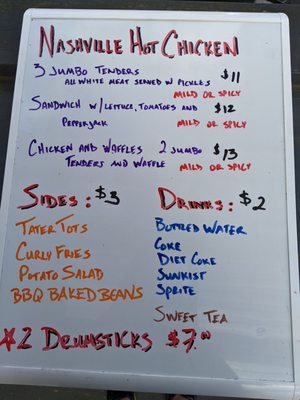 NASHVILLE HOT CHICKEN
3 JUMBO TENDERS $11
ALL WHITE MEAT SERVED W/ PICKLES
MILD OR SPICY
SANDWICH W/ LETTUCE, TOMATOES AND $12
PEPPERJACK MILD OR SPICY
CHICKEN AND WAFFLES 2 JUMBO $13
TENDERS AND WAFFLE MILD OR SPICY
SIDES: $3
TATER TOTS
CURLY FRIES
POTATO SALAD
BBQ BAKED BEANS
DRINKS: $2
BOTTLED WATER
COKE
DIET COKE
SUNKIST
SPRITE
SWEET TEA
★2 DRUMSTICKS $7.00